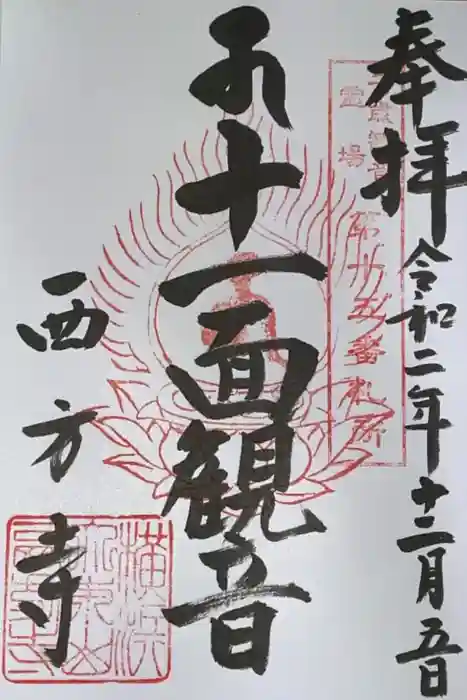 奉拝 令和二年十二月五日
子歳観音霊場 第廿五番札所
十一面観音
西方寺
横浜